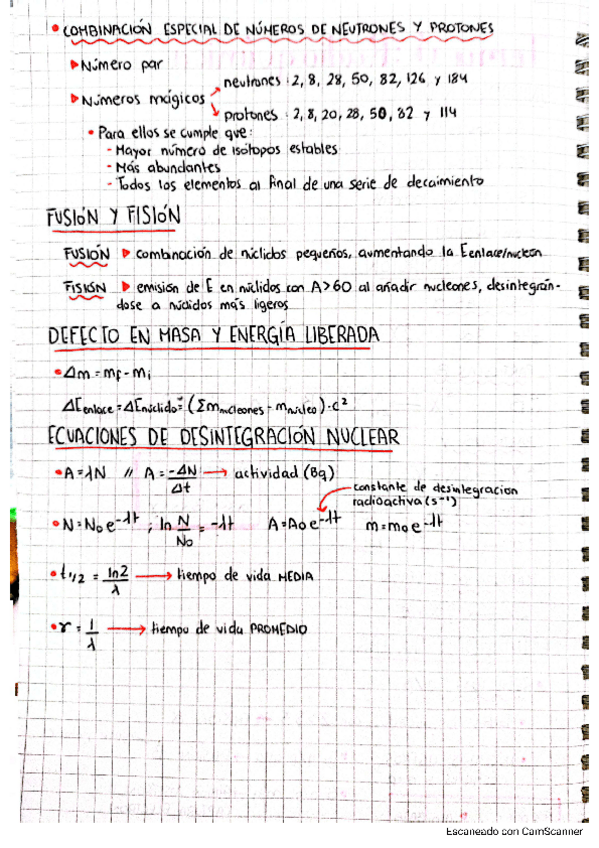 • COMBINACIÓN ESPECIAL DE NÚMEROS DE NEUTRONES Y PROTONES
▸ Número par
▸ Números mágicos
neutrones : 2, 8, 28, 50, 82, 126 y 184
protones : 2, 8, 20, 28, 50, 82 y 114
• Para ellos se cumple que:
- Mayor número de isótopos estables
- Más abundantes
- Todos los elementos al final de una serie de decaimiento
FUSIÓN Y FISIÓN
FUSIÓN ▸ combinación de núclidos pequeños, aumentando la Eenlace/nucleón
FISIÓN ▸ emisión de E en núclidos con A>60 al añadir nucleones, desintegrán-
dose a núclidos más ligeros
DEFECTO EN MASA Y ENERGÍA LIBERADA
• Δm = mf - mi
ΔEenlace = ΔEnúclido = (Σmnucleones - mnúcleo)·c²
ECUACIONES DE DESINTEGRACIÓN NUCLEAR
• A = λN // A = -ΔN/Δt → actividad (Bq)
constante de desintegracion
radioactiva (s⁻¹)
• N = N₀e^-λt ; ln N/N₀ = -λt A = A₀e^-λt m = m₀e^-λt
• t1/2 = ln2/λ → tiempo de vida MEDIA
• τ = 1/λ → tiempo de vida PROMEDIO
Escaneado con CamScanner